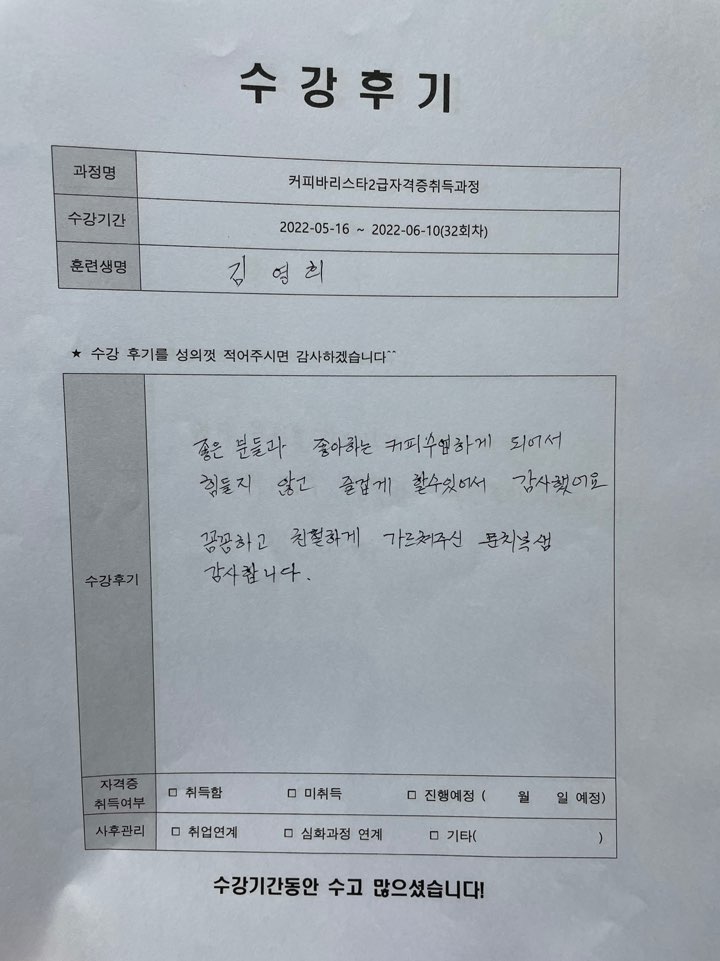 수강후기
과정명 커피바리스타2급자격증취득과정
수강기간 2022-05-16 ~ 2022-06-10(32회차)
훈련생명 김영희
★ 수강 후기를 성의껏 적어주시면 감사하겠습니다^^
수강후기
좋은 분들과 좋아하는 커피수업하게 되어서
힘들지 않고 즐겁게 할수있어서 감사했어요
꼼꼼하고 친절하게 가르쳐주신
감사합니다.
자격증
취득여부 □ 취득함 □ 미취득 □ 진행예정 ( 월 일 예정)
사후관리 □ 취업연계 □ 심화과정 연계 □ 기타( )
수강기간동안 수고 많으셨습니다!